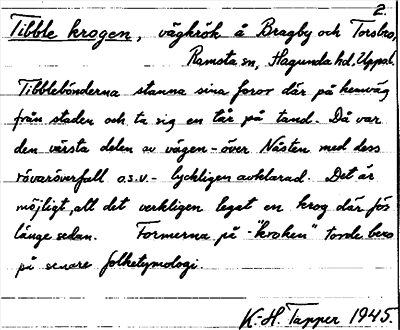 2.
Tibble krogen, vägkrök å Bragby och Torsbro,
Ramsta sn, Hagunda hd, Uppsal.
Tibblebönderna stanna sina foror där på hemväg
från staden och ta sig en tår på tand. Då var
den värsta delen av vägen - över Nåsten med dess
rövaröverfall o.s.v. - lyckligen avklarad. Det är
möjligt, att det verkligen legat en krog där för
länge sedan. Formerna på - "kroken" torde bero
på senare folketymologi.
K.-H. Tapper 1945.